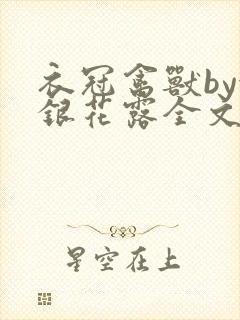 衣冠禽獸by
銀花露全文
星空在上